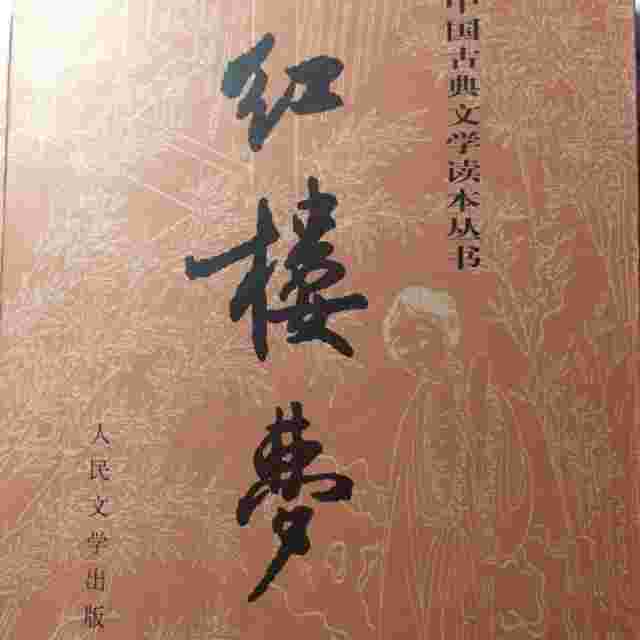 中国古典文学读本丛书
红楼梦
人民文学出版